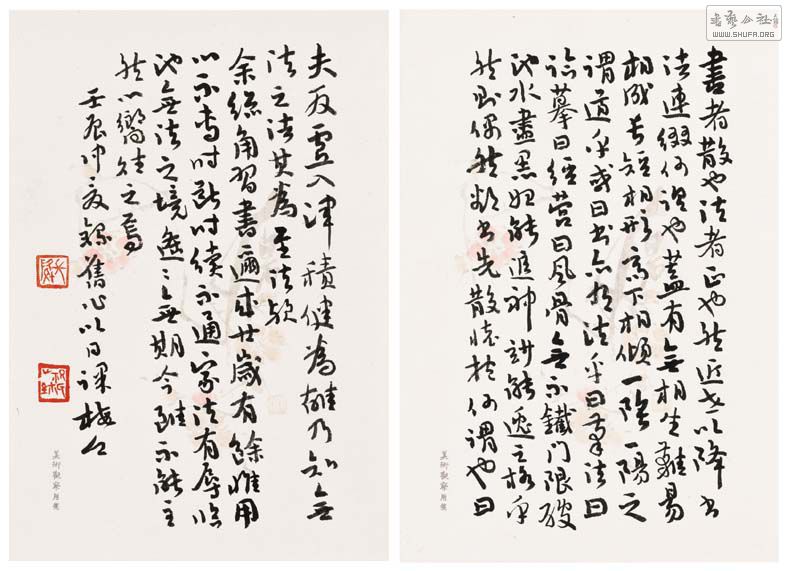 書藝公社
WWW.SHUFA.ORG
書者散也法者正也然近世以降書
法連綴何謂也蓋有無相生難易
相成長短相形高下相傾一陰一陽之
謂道乎或曰書亦有法乎曰有法曰
臨摹曰經營曰風骨無不鐵門限破
池水盡黑如能進神部能逸之格乎
然則偶然欲書先散懷抱何謂也曰
夫反虛入渾積健為雄乃知無
法之法其為至法歟
余總角習書邇來廿歲有餘惟用
以不專時斷時續不通家法有辱臨
池無法之境遙遙無期今雖不能至
然心嚮往之焉
壬辰仲夏錄舊心以日課
美術觀察用箋
美術觀察用箋